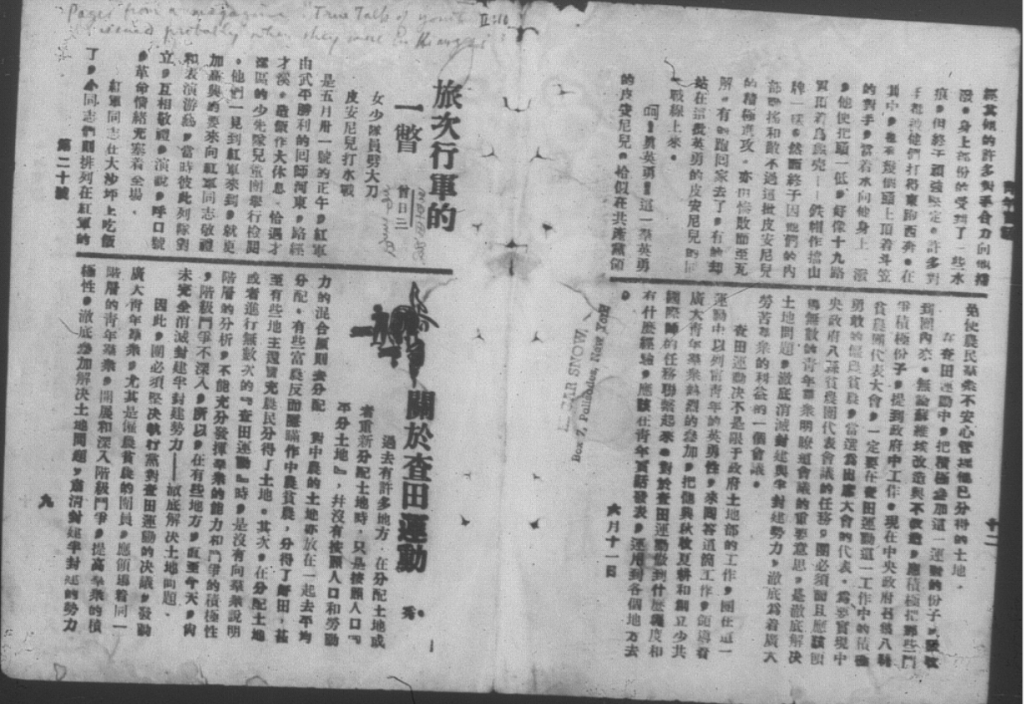 Pages from a magazine "True Talk of youth" II:10
issued probably when they were in Kiangsi
青年實話
十二
經其姐的許多對手合力向她攻
潑，身上部份的受到了一些水
痕，但終于頑強堅定，許多對
手都給他們打得東跑西奔，在
其中，也有幾個頭上頂着斗笠
的對手，當着水向他身上一潑
，他便把頭一低，好像十九路
軍頂着烏龜壳——鉄帽作擋山
牌一樣，然而終于因她們的內
部動搖和敵不過這批皮安尼兒
的積極進攻，亦由慘敗而至瓦
解，有的跑回家去了，有的却
站在這批英勇的皮安尼兒的同
一戰線上來。
呵！真英勇！這一羣英勇
的皮安尼兒，恰似在共產黨領
是使農民羣眾不安心管理他已分得的土地。
在查田運動中，把積極參加這一運動的份子，吸收
到團內來。無論蘇維埃改造與不改造，應積極把那些鬥
爭積極份子，提到政府中工作。現在中央政府召集八縣
貧農團代表大會，一定要在查田運動這一工作中的積極
勇敢的僱農貧農，當選為出席大會的代表，為要實現中
央政府八縣貧農團代表會議的任務，團必須而且應該領
導無數的青年羣眾明瞭這會議的重要意思，是徹底解決
土地問題，澈底消滅封建與半封建勢力，澈底為着廣大
勞苦羣眾的利益的一個會議。
查田運動决不是限于政府土地部的工作，團在這一
運動中以列甯青年的英勇性，來回答這個工作，領導着
廣大青年羣眾熱烈的參加，把他與秋收夏耕和創立少共
國際師的任務聯繫起來。對於查田運動做到什麼程度和
有什麼經驗，應該在青年實話發表，運用到各個地方去
。
六月十一日
EDGAR SNOW
Box 7, Palisades, New York
旅次行軍的
一瞥
曾日三
女少隊員劈大刀
皮安尼兒打水戰
是五月卅一號的正午，紅軍
由武平勝利的回師河東，路經
才溪，適值作大休息，恰遇才
溪區的少先隊兒童團舉行檢閱
。他們一見到紅軍來到，就更
加高興的要來向紅軍同志敬禮
和表演游藝，當時彼此列隊對
立，互相敬禮，演說，呼口號
，革命情緒充塞着全場。
紅軍同志在大沙坪上吃飯
了，小同志們則排列在紅軍的
第二十號
關於查田運動
秀．
過去有許多地方，在分配土地或
者重新分配土地時，只是按照人口『
平分土地』，并沒有按照人口和勞動
力的混合原則去分配。對中農的土地亦放在一起去平均
分配。有些富農反而隱瞞作中農貧農，分得了好田，甚
至有些地主還冒充農民分得了土地。其次，在分配土地
或者進行無數次的『查田運動』時，是沒有向羣眾說明
階層的分析，不能充分發揮羣眾的能力和鬥爭的積極性
，階級鬥爭不深入，所以，在有些地方，直至今天，尚
未完全消滅封建半封建勢力——澈底解决土地問題。
因此，團必須堅决執行黨對查田運動的决議，發動
廣大青年羣眾，尤其是僱農貧農的團員，應領導着同一
階層的青年羣眾，開展和深入階級鬥爭，提高羣眾的積
極性，澈底參加解决土地問題，肅清封建半封建的勢力
九